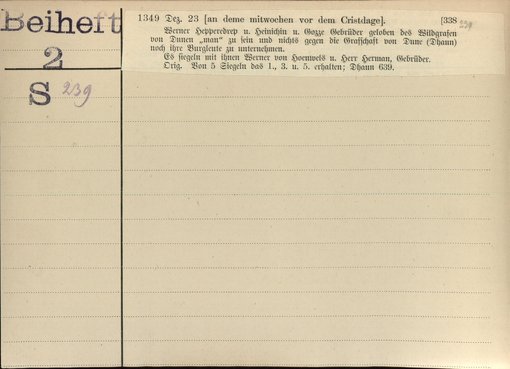 Beiheft
2
S 239
1349 Dez. 23 [an deme mitwochen vor dem Cristdage]. [338
Werner Hepperedrep u. Heinichin u. Gozze Gebrüder geloben des Wildgrafen
von Dunen „man“ zu sein und nichts gegen die Grafschaft von Dune (Dhaun)
noch ihre Burgleute zu unternehmen.
Es siegeln mit ihnen Werner von Hoenwels u. Herr Herman, Gebrüder.
Orig. Von 5 Siegeln das 1., 3. u. 5. erhalten; Dhaun 639.